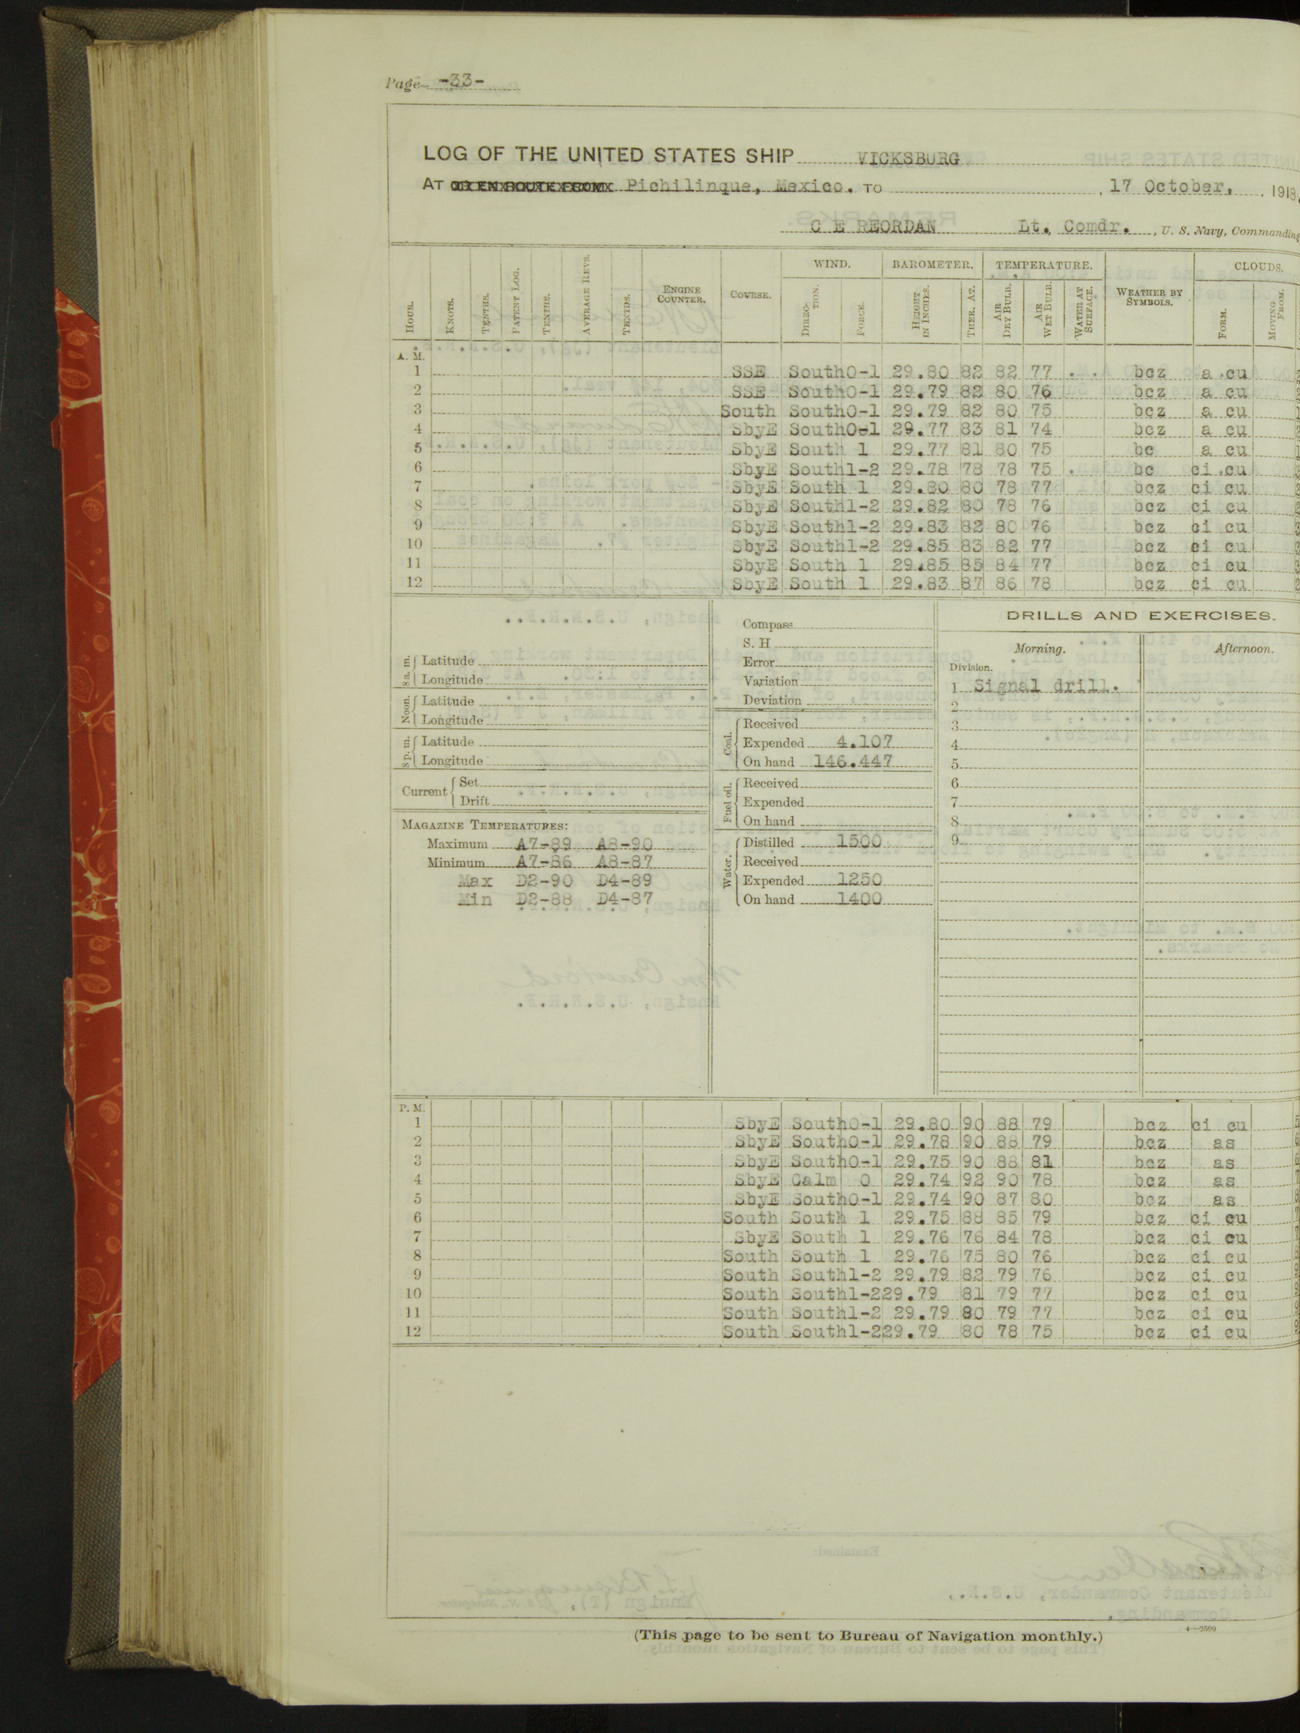 Page -33-
LOG OF THE UNITED STATES SHIP VICKSBURG
AT Pichilinque, Mexico. TO , 17 October, , 1918.
C E REORDAN Lt. Comdr. , U. S. Navy, Commanding
WIND. BAROMETER. TEMPERATURE. CLOUDS.
HOUR. KNOTS. TENTHS. PATENT LOG. TENTHS. AVERAGE REVS. TENTHS. ENGINE COUNTER. COURSE. DIRECTION. FORCE. HEIGHT IN INCHES. THER. AT. AIR DRY BULB. AIR WET BULB. WATER AT SURFACE. WEATHER BY SYMBOLS. FORM. MOVING FROM.
A. M.
1 SSE South 0-1 29.80 82 82 77 bcz a cu
2 SSE South 0-1 29.79 82 80 76 bcz a cu
3 South South 0-1 29.79 82 80 75 bcz a cu
4 SbyE South 0-1 29.77 83 81 74 bcz a cu
5 SbyE South 1 29.77 81 80 75 bc a cu
6 SbyE South 1-2 29.78 78 78 75 bc ci cu
7 SbyE South 1 29.80 80 78 77 bcz ci cu
8 SbyE South 1-2 29.82 80 78 76 bcz ci cu
9 SbyE South 1-2 29.83 82 80 76 bcz ci cu
10 SbyE South 1-2 29.85 83 82 77 bcz ci cu
11 SbyE South 1 29.85 85 84 77 bcz ci cu
12 SbyE South 1 29.83 87 86 78 bcz ci cu
8 a. m. Latitude
Longitude
Noon. Latitude
Longitude
8 p. m. Latitude
Longitude
Current Set
Drift
MAGAZINE TEMPERATURES:
Maximum A7-89 A8-90
Minimum A7-86 A8-87
Max D2-90 D4-89
Min D2-88 D4-87
Compass
S. H
Error
Variation
Deviation
Coal. Received
Expended 4.107
On hand 146.447
Fuel oil. Received
Expended
On hand
Water. Distilled 1500
Received
Expended 1250
On hand 1400
DRILLS AND EXERCISES.
Morning. Afternoon.
Division.
1 Signal drill.
2
3
4
5
6
7
8
9
P. M.
1 SbyE South 0-1 29.80 90 88 79 bcz ci cu
2 SbyE South 0-1 29.78 90 88 79 bcz as
3 SbyE South 0-1 29.75 90 88 81 bcz as
4 SbyE Calm 0 29.74 92 90 78 bcz as
5 SbyE South 0-1 29.74 90 87 80 bcz as
6 South South 1 29.75 88 85 79 bcz ci cu
7 SbyE South 1 29.76 76 84 78 bcz ci cu
8 South South 1 29.76 75 80 76 bcz ci cu
9 South South 1-2 29.79 82 79 76 bcz ci cu
10 South South 1-2 29.79 81 79 77 bcz ci cu
11 South South 1-2 29.79 80 79 77 bcz ci cu
12 South South 1-2 29.79 80 78 75 bcz ci cu
(This page to be sent to Bureau of Navigation monthly.)